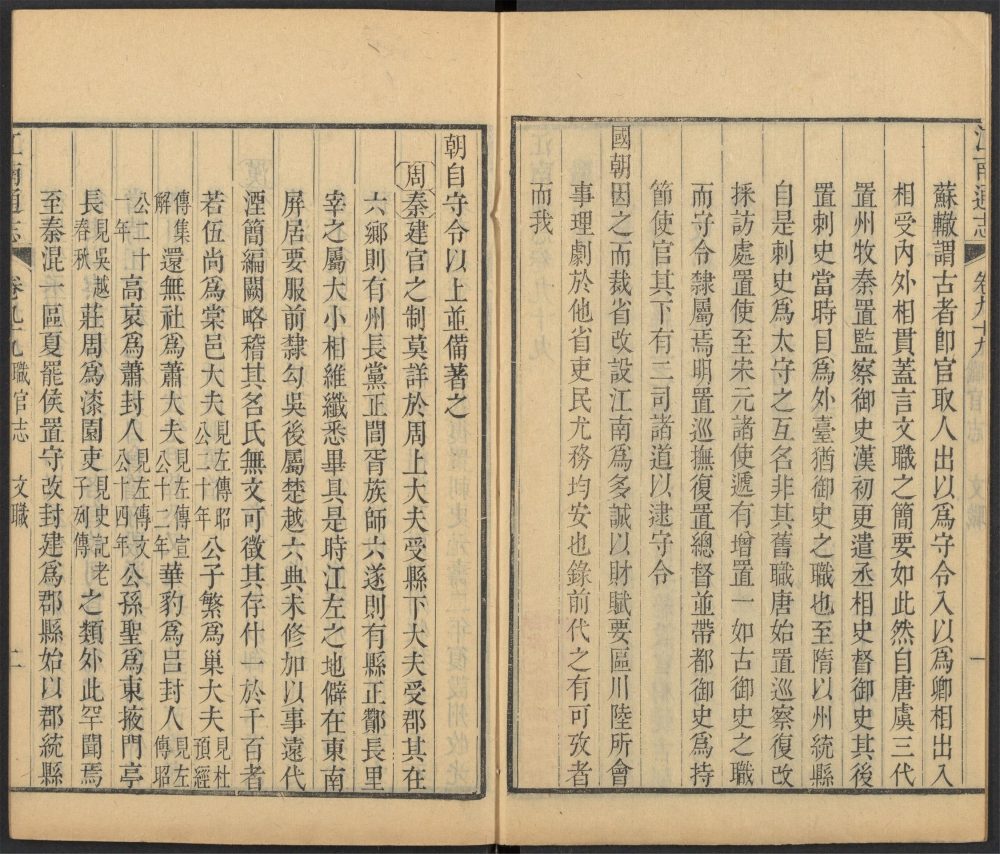 江南通志 卷九十九 一
蘇轍謂古者卽官取人出以爲守令入以爲卿相出入
相受內外相貫蓋言文職之簡要如此然自唐虞三代
置州牧秦置監察御史漢初更遣丞相史督御史其後
置刺史當時目爲外臺猶御史之職也至隋以州統縣
自是刺史爲太守之互名非其舊職唐始置巡察復改
採訪處置使至宋元諸使遞有增置一如古御史之職
而守令隸屬焉明置巡撫復置總督並帶都御史爲持
節使官其下有二司諸道以逮守令
國朝因之而裁省改設江南爲多誠以財賦要區川陸所會
事理劇於他省吏民尤務均安也錄前代之有可攷者
而我
朝自守令以上並備著之
周秦建官之制莫詳於周上大夫受縣下大夫受郡其在
六鄉則有州長黨正閭胥族師六遂則有縣正酇長里
宰之屬大小相維纖悉畢具是時江左之地僻在東南
屏居要服前隸勾吳後屬楚越六典未修加以事遠代
湮簡編闕略稽其名氏無文可徵其存什一於千百者
若伍尚爲棠邑大夫見左傳昭公二十年公子繁爲巢大夫見杜預經
傳集解還無社爲蕭大夫見左傳宣公十二年華豹爲呂封人見左傳昭
公二十一年高哀爲蕭封人見左傳文公十四年公孫聖爲東掖門亭
長見吳越春秋莊周爲漆園吏見史記老子列傳之類外此罕聞焉
至秦混一區夏罷侯置守改封建爲郡縣始以郡統縣
江南通志 卷九十九 職官志 文職 二